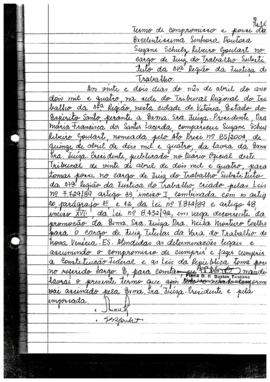 Termo de compromisso e posse da
Excelentíssima Senhora Doutora
Suzane Schulz Ribeiro Goulart no
cargo de Juiz do Trabalho Substi
tuto da 17ª Região da Justiça do
Trabalho.
Aos vinte e dois dias do mês de abril do ano
dois mil e quatro, na sede do Tribunal Regional do Tra
balho da 17ª Região, nesta cidade de Vitória, Estado do
Espírito Santo, perante a Exma. Sra. Juíza Presidente, Dra
Maria Francisca dos Santos Lacerda, compareceu Suzane Schulz
Ribeiro Goulart, nomeada pelo Ato Presi nº de
quinze de abril de dois mil e quatro, da lavra da Exma
Sra. Juíza Presidente, publicado no Diário Oficial deste
Tribunal de vinte de abril de dois mil e quatro, para
tomar posse no cargo de Juiz do Trabalho Substituto
da 17ª Região da Justiça do Trabalho, criado pelas Leis
nº 7.729/89, artigo inciso I, combinada com o artigo
parágrafo e da Lei nº artigo
inciso XVII da Lei nº 8.432/92, em vaga decorrente da
promoção da Exma. Sra. Juíza Dra. Neila Monteiro
para o cargo de Juiz Titular da Vara do Trabalho de
Nova Venécia-ES. Atendidas as determinações legais e
assumindo o compromisso de cumprir e fazer cumprir
a Constituição Federal e as Leis da República, toma posse
no referido cargo. E, para constar, mandou
lavrar o presente termo que
vai assinado pela Exma. Sra. Juíza Presidente e pela
empossada.